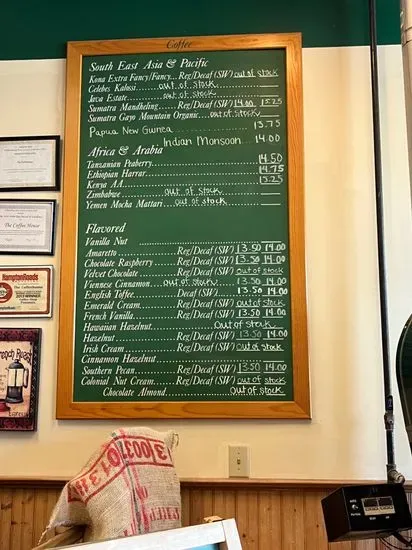 Coffee
South East Asia & Pacific
Kona Extra Fancy/Fancy... Reg/Decaf (SW) out of stock
Celebes Kalossi........ out of stock
Java Estate........ out of stock
Sumatra Mandheling........ Reg/Decaf (SW) 14.00 15.25
Sumatra Gayo Mountain Organic.....out of stock
Papua New Guinea 13.75
Indian Monsoon 14.00
Africa & Arabia
Tanzanian Peaberry........ 14.50
Ethiopian Harrar........ 14.75
Kenya AA........ 13.25
Zimbabwe........ out of stock
Yemen Mocha Mattari.....out of stock
Flavored
Vanilla Nut ........
Amaretto........Reg/Decaf (SW) 13.50 14.00
Chocolate Raspberry........Reg/Decaf (SW) 13.50 14.00
Velvet Chocolate........Reg/Decaf (SW) out of stock
Viennese Cinnamon..... out of stock ..... 13.50 14.00
English Toffee........Decaf (SW)..... 13.50 14.00
Emerald Cream........Reg/Decaf (SW) out of stock
French Vanilla........Reg/Decaf (SW) 13.50 14.00
Hawaiian Hazelnut........ out of stock
Hazelnut........Reg/Decaf (SW) 13.50 14.00
Irish Cream........Reg/Decaf (SW) out of stock
Cinnamon Hazelnut........
Southern Pecan........Reg/Decaf (SW) 13.50 14.00
Colonial Nut Cream........Reg/Decaf (SW) out of stock
Chocolate Almond........ out of stock
The Coffee House
HamptonRoads
French Roast